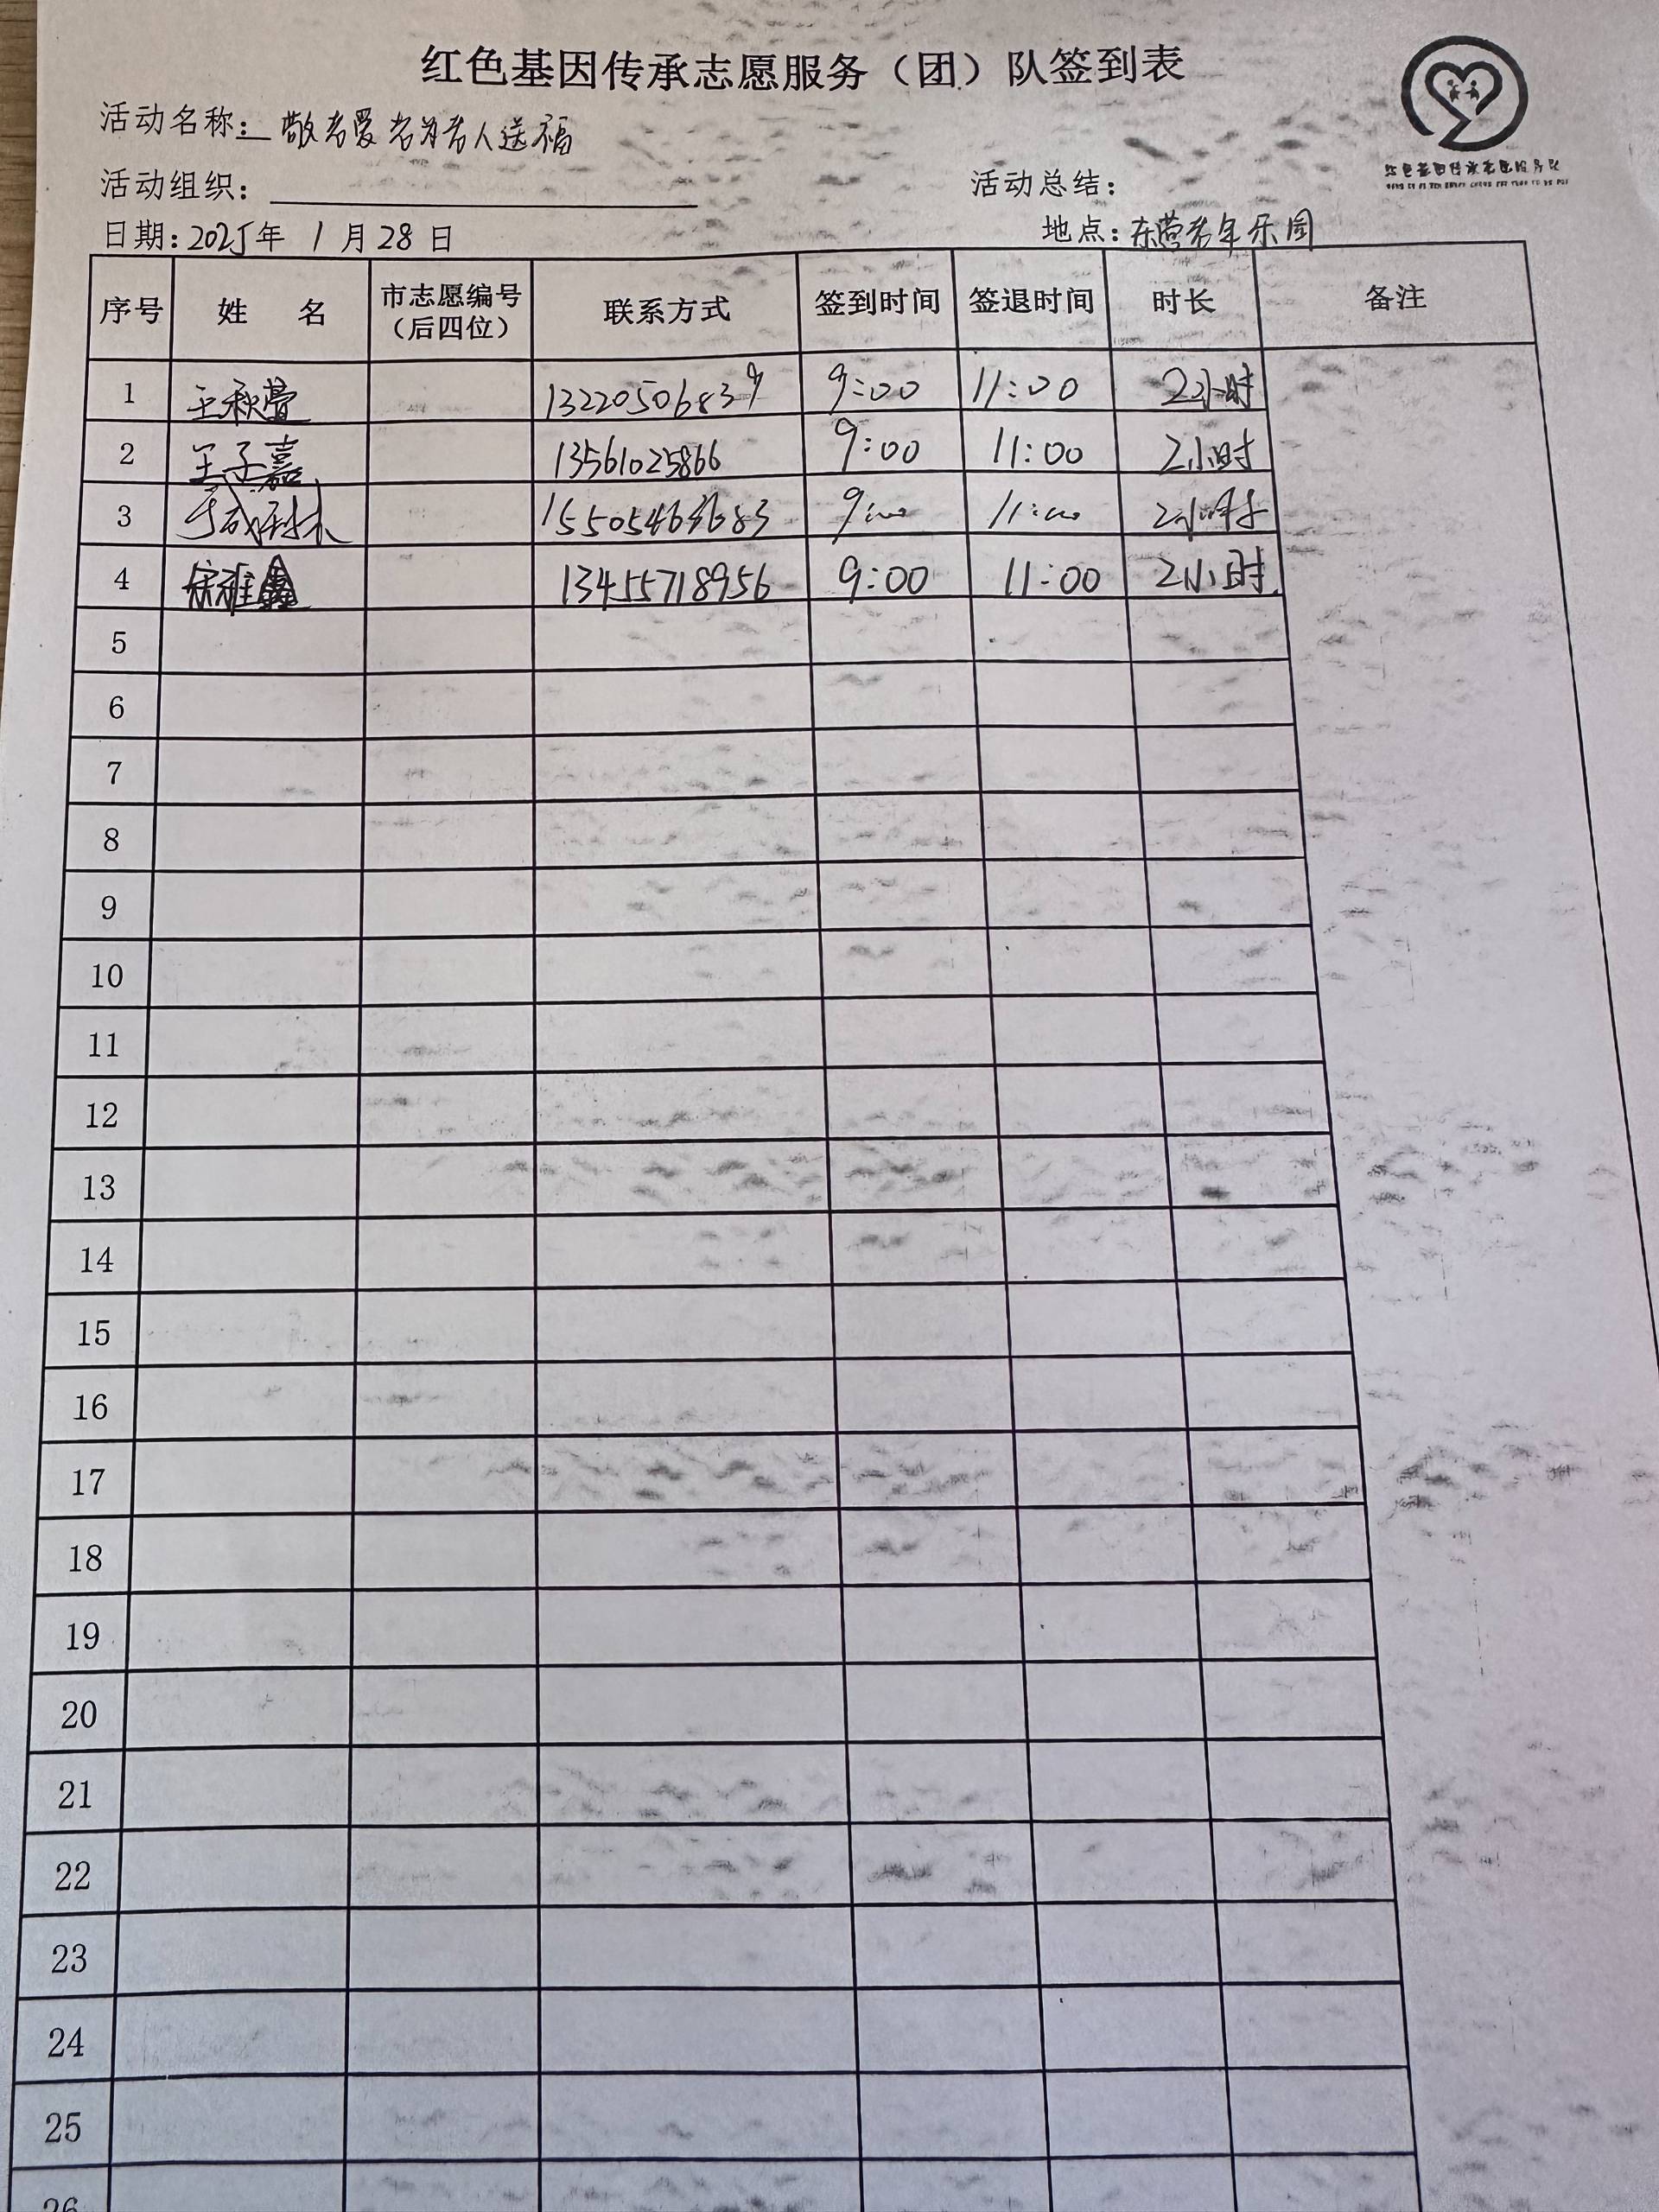 红色基因传承志愿服务（团）队签到表
活动名称：敬老爱老为老人送福
活动组织：
活动总结：
红色基因传承志愿服务队
日期：2025年 1 月 28 日
地点：东营老年乐园
序号 姓 名 市志愿编号（后四位） 联系方式 签到时间 签退时间 时长 备注
1 王秋萱 13220506839 9:00 11:00 2小时
2 王子嘉 13561025866 9:00 11:00 2小时
3 于成 9:00 11:00 2小时
4 宋雅鑫 13455718956 9:00 11:00 2小时
5
6
7
8
9
10
11
12
13
14
15
16
17
18
19
20
21
22
23
24
25
26